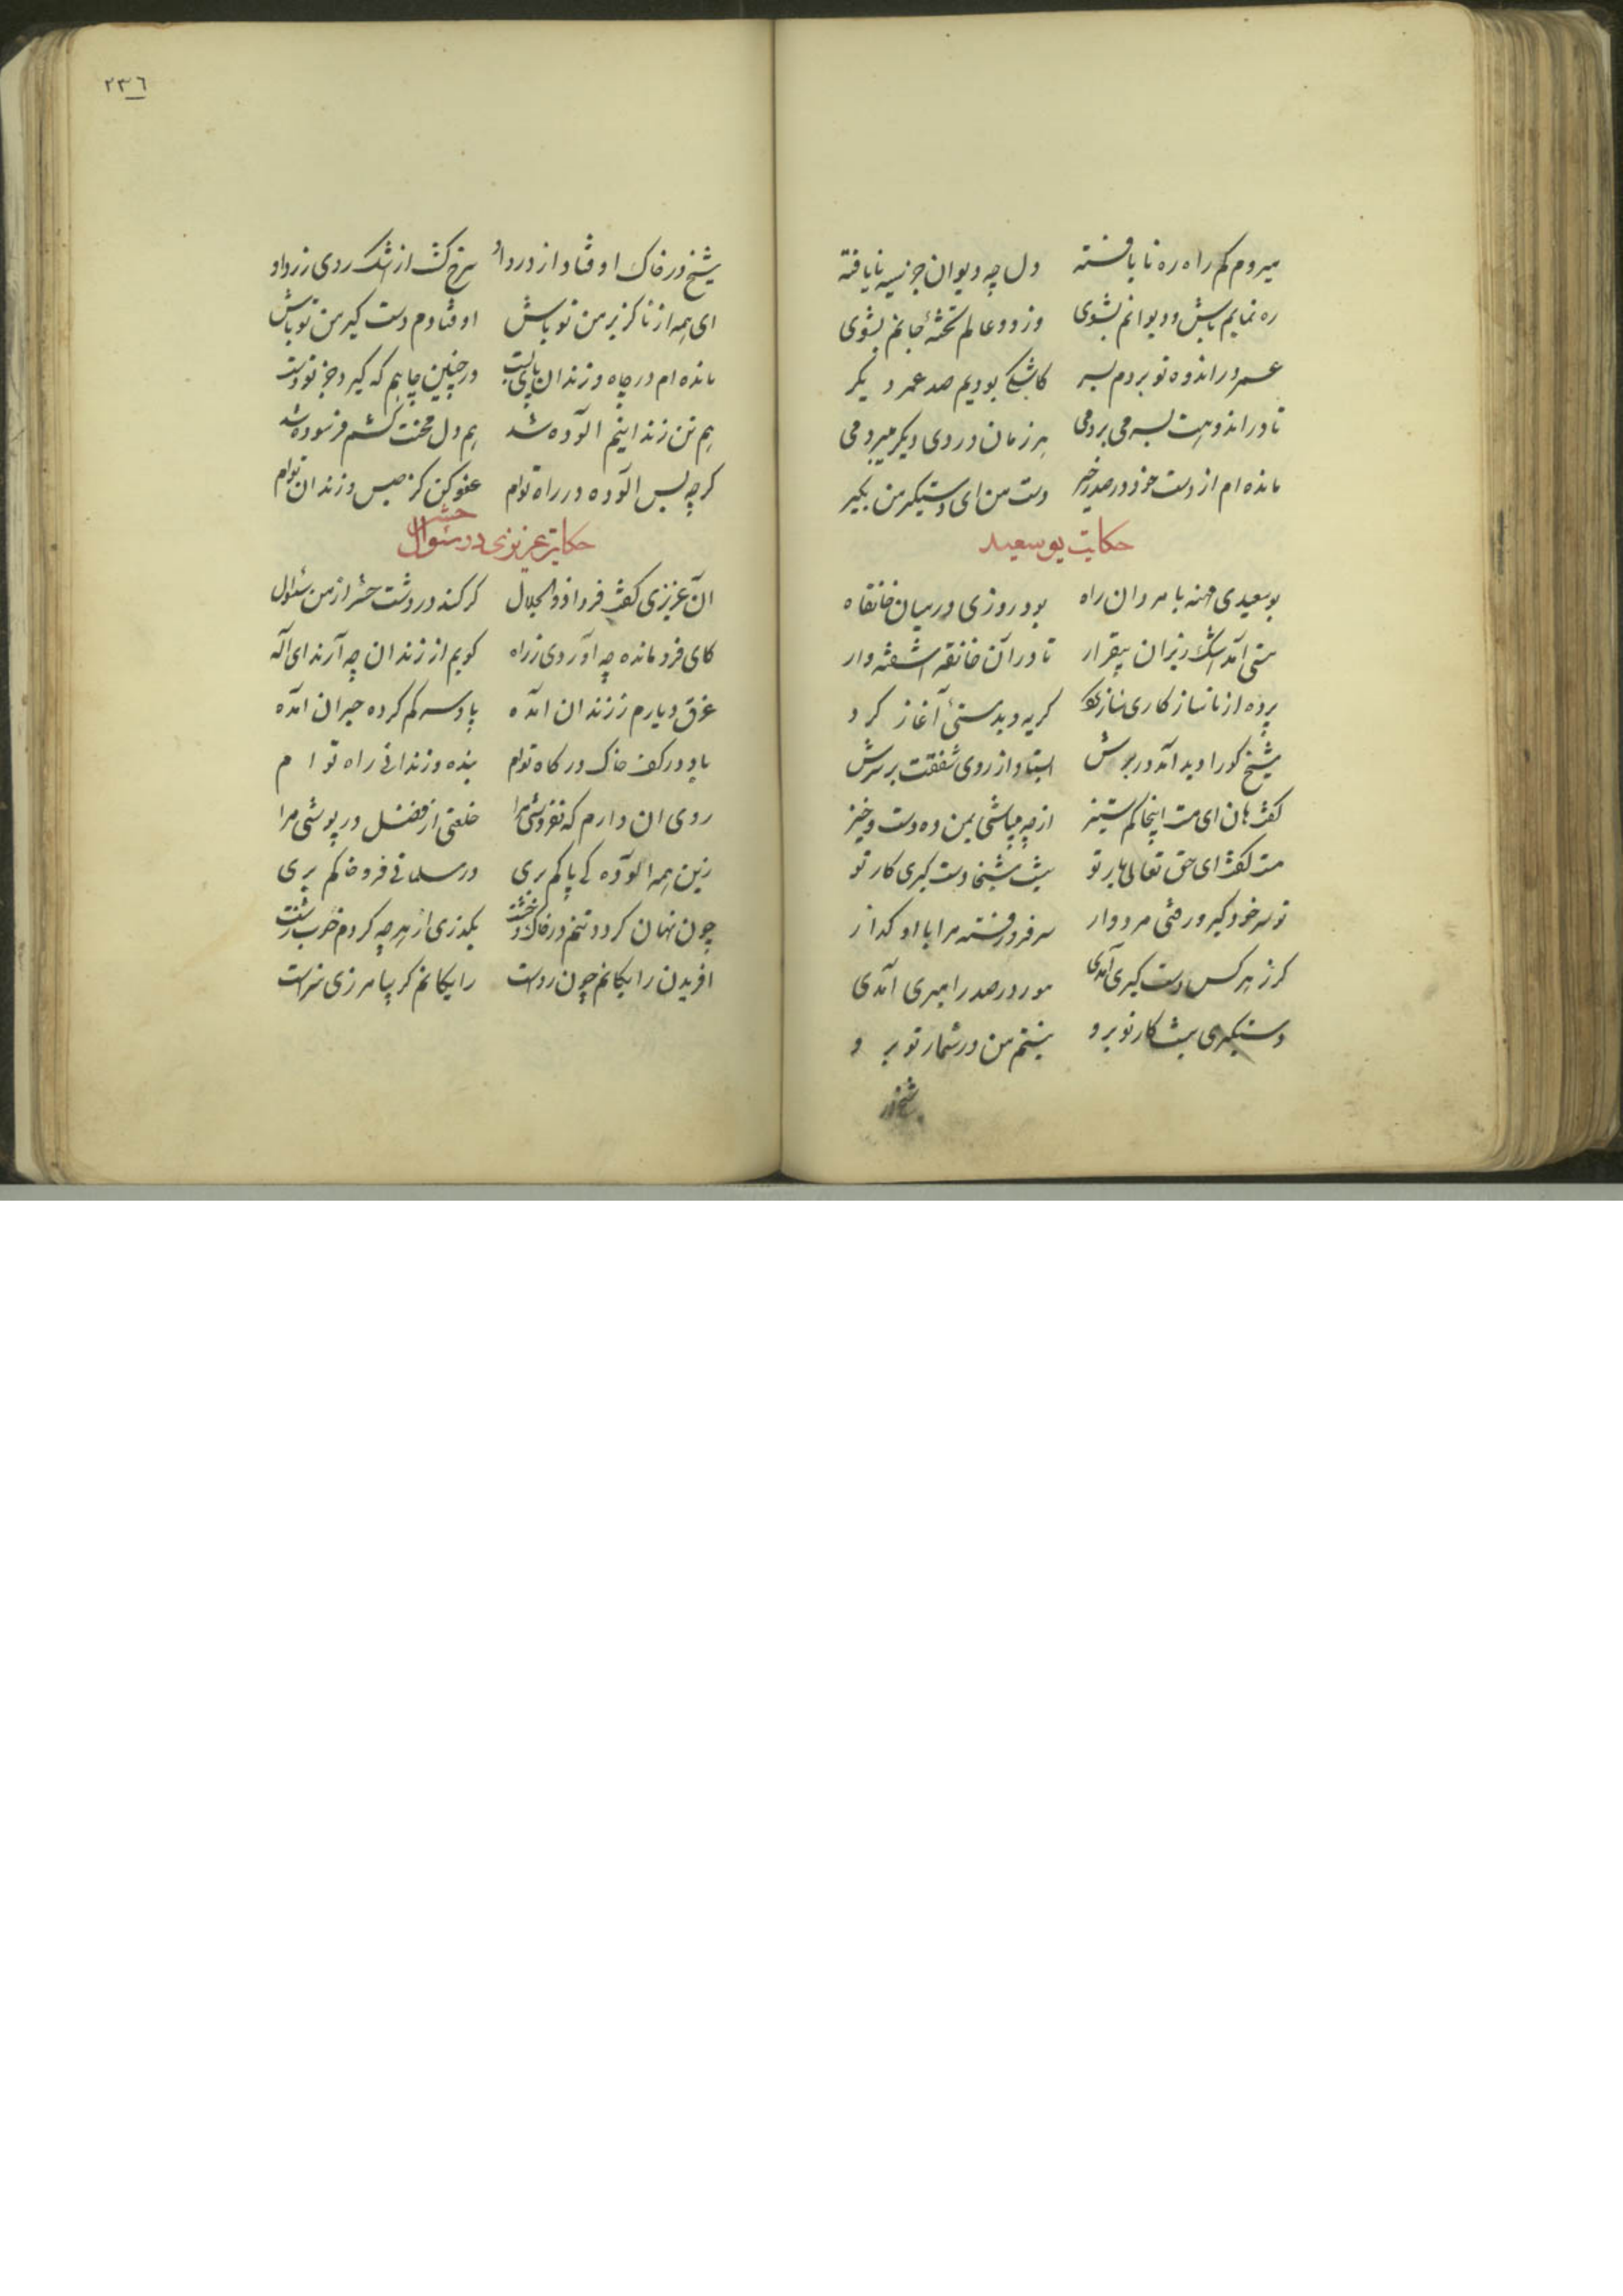 میروم گم راه ره نایافته دل چه دیوان جز نسیه نایافته
ره نمایم باش و دیوانم بشوی وز دو عالم تختهٔ جانم بشوی
عمر در اندوه تو بردم بسر کاشکی بودیم صد عمر دیگر
تا در اندوهت بسر می بردمی هر زمان دردی دیگر میبردمی
مانده ام از دست خود در صد زحیر دست من ای دستگیر من بگیر
حکایت بوسعید
بوسعیدی مهنه با مردان راه بود روزی در میان خانقاه
مستی آمد اشک ریزان بیقرار تا در آن خانقه آشفته وار
پرده از ناسازگاری باز کرد گریه و بدمستیٔ آغاز کرد
شیخ کورا دید آمد در برش ایستاد از روی شفقت بر سرش
گفت هان ای مست اینجا کم ستیز از چه میباشی بمن ده دست و خیز
مست گفت ای حق تعالی یار تو نیست شیخا دست گیری کار تو
تو سر خود گیر و رفتی مردوار سر فرو رفته مرا با او گذار
گر ز هر کس دست گیری آمدی مور در صدر امیری آمدی
دستگیری نیست کار تو برو نیستم من در شمار تو برو
شیخ در
٢٣٦
شیخ در خاک اوفتاد از درد او سرخ گشت از اشک روی زرد او
ای همه از ناگزیر من تو باش اوفتادم دست گیر من تو باش
مانده ام در چاه و زندان پای بست در چنین چاهم که گیرد جز تو دست
هم تن زندانیم آلوده شد هم دل محنت کشم فرسوده شد
گرچه بس آلوده در راه توام عفو کن کز حبس و زندان توام
حکایت عزیزی در سئوال حشر
آن عزیزی گفت فردا ذوالجلال گر کند در دشت حشر از من سئوال
کای فرومانده چه آوردی ز راه گویم از زندان چه آرند ای اله
غرق دیارم ز زندان آمده پا و سر گم کرده حیران آمده
باد در کف خاک درگاه توام بنده و زندانی راه توام
روی آن دارم که نفروشی مرا خلعتی از فضل در پوشی مرا
زین همه آلوده کی پاکم بری در مسلمانی فرو خاکم بری
چون نهان گردد تنم در خاک و خشت بگذری از هرچه کردم خوب و زشت
آفریدن رایگانم چون رواست رایگانم گر بیامرزی سزاست